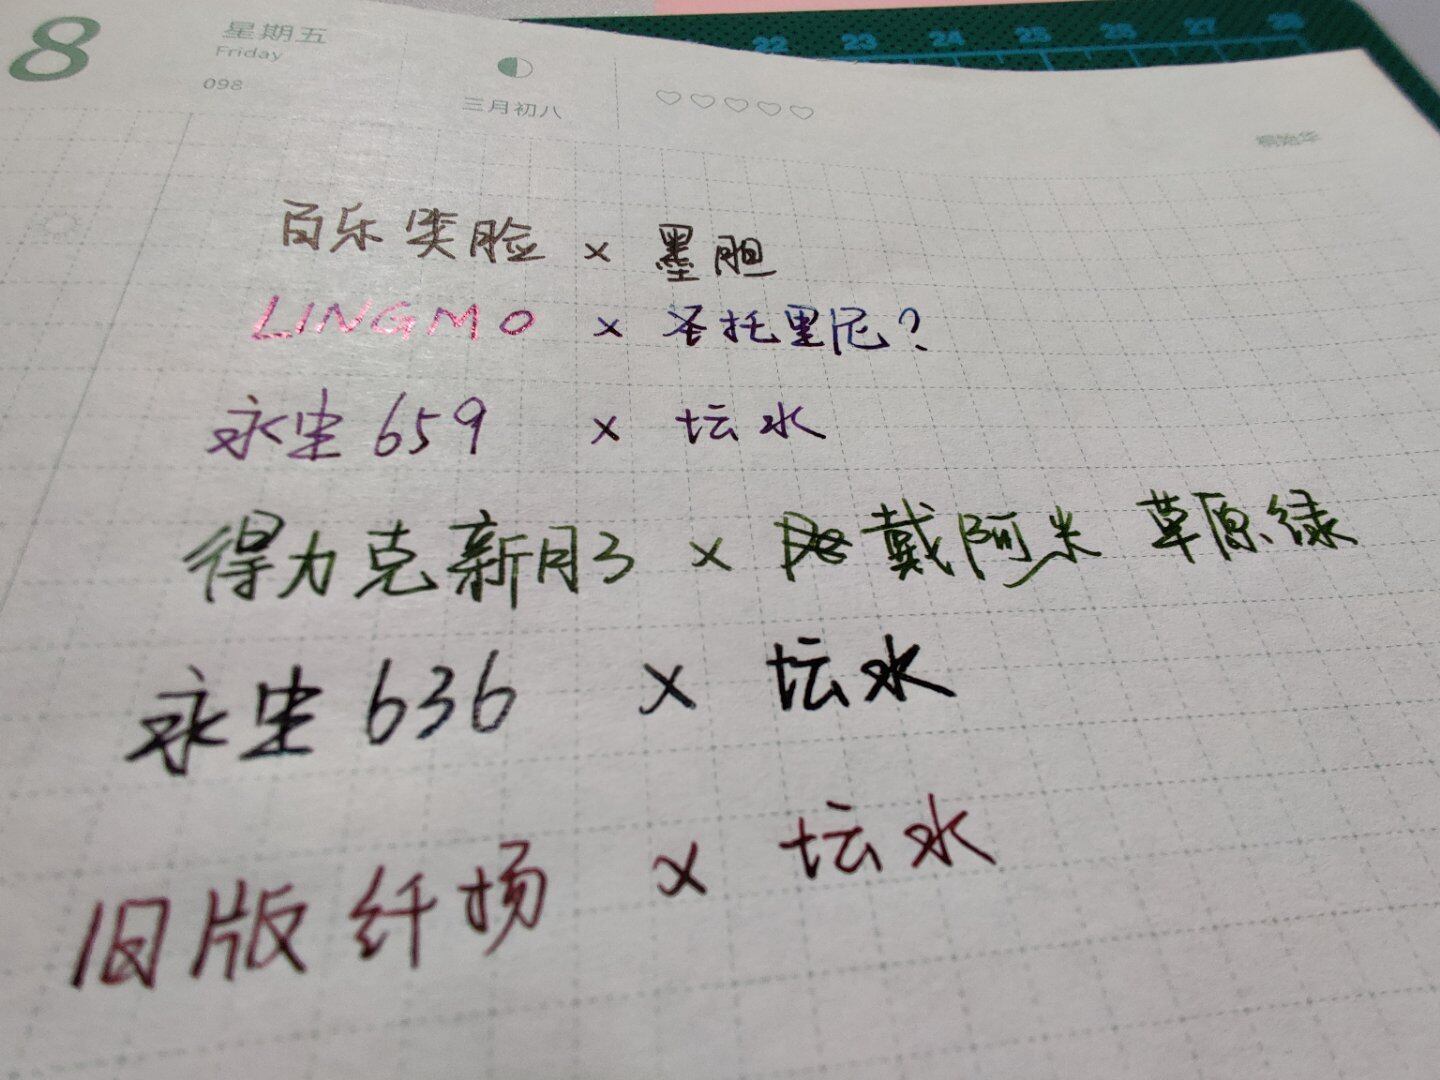 8
星期五
Friday
098
三月初八
22 23 24 25 26 27 28
百乐笑脸 × 墨胆
LINGMO × 圣托里尼?
永生 659 × 坛水
得力克新月3 × 戴阿米 草原绿
永生 636 × 坛水
旧版纤扬 × 坛水